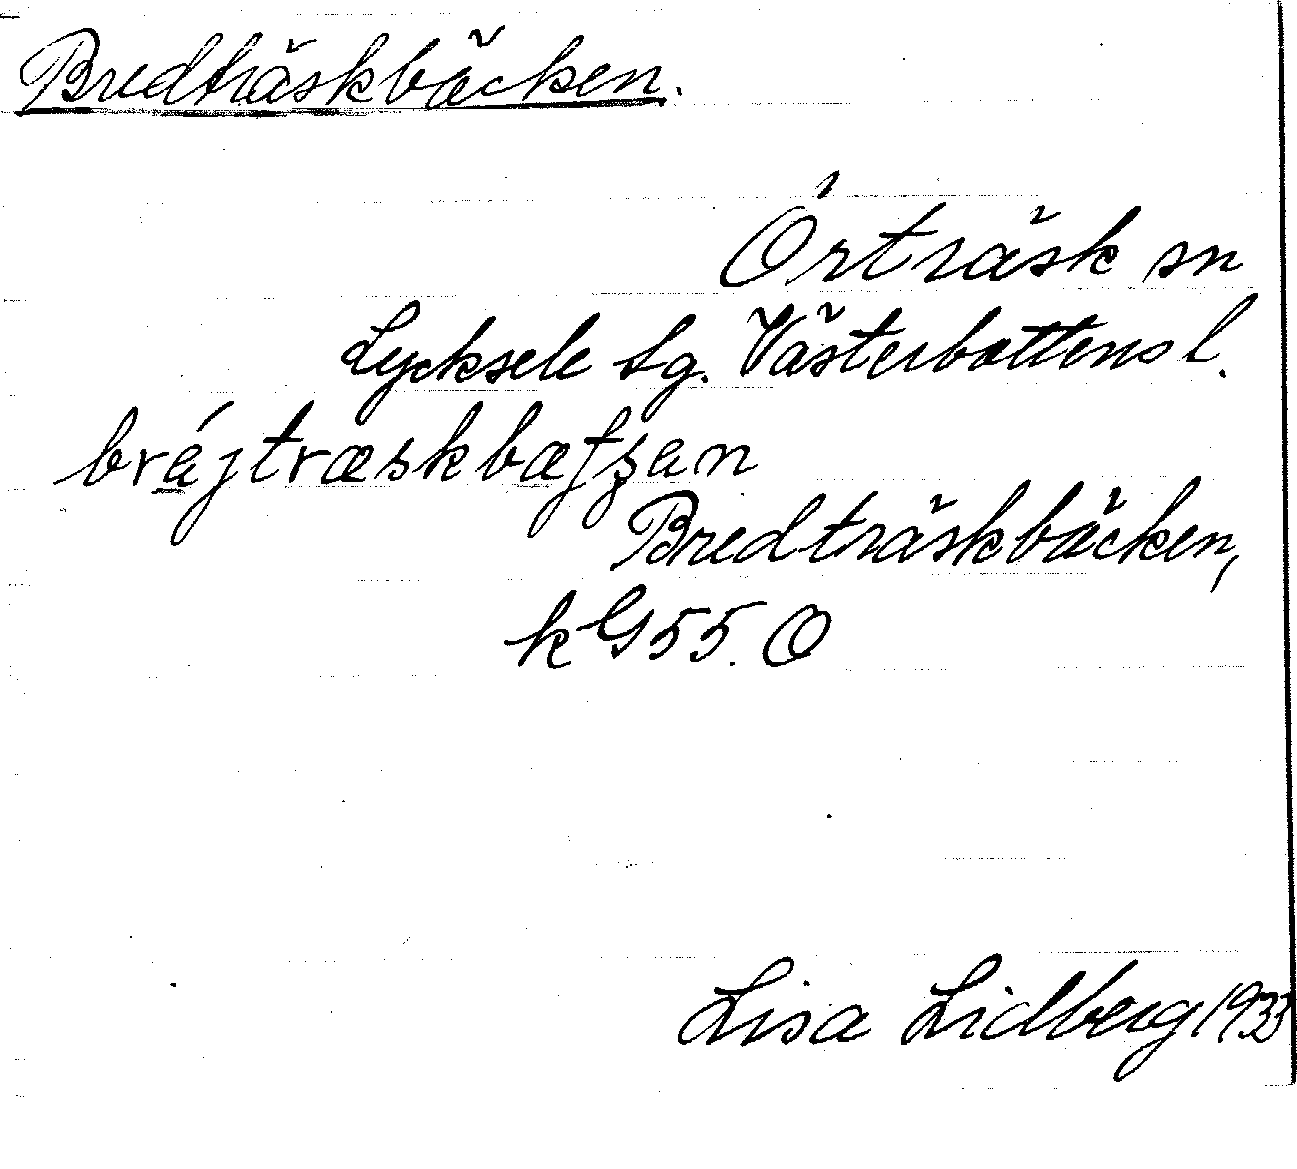 Bredträskbäcken.
Örträsk sn
Lycksele tg. Västerbottens l.
brájtræskbæʃʒan
Bredträskbäcken,
k G 55. O
Lisa Lidberg 1933